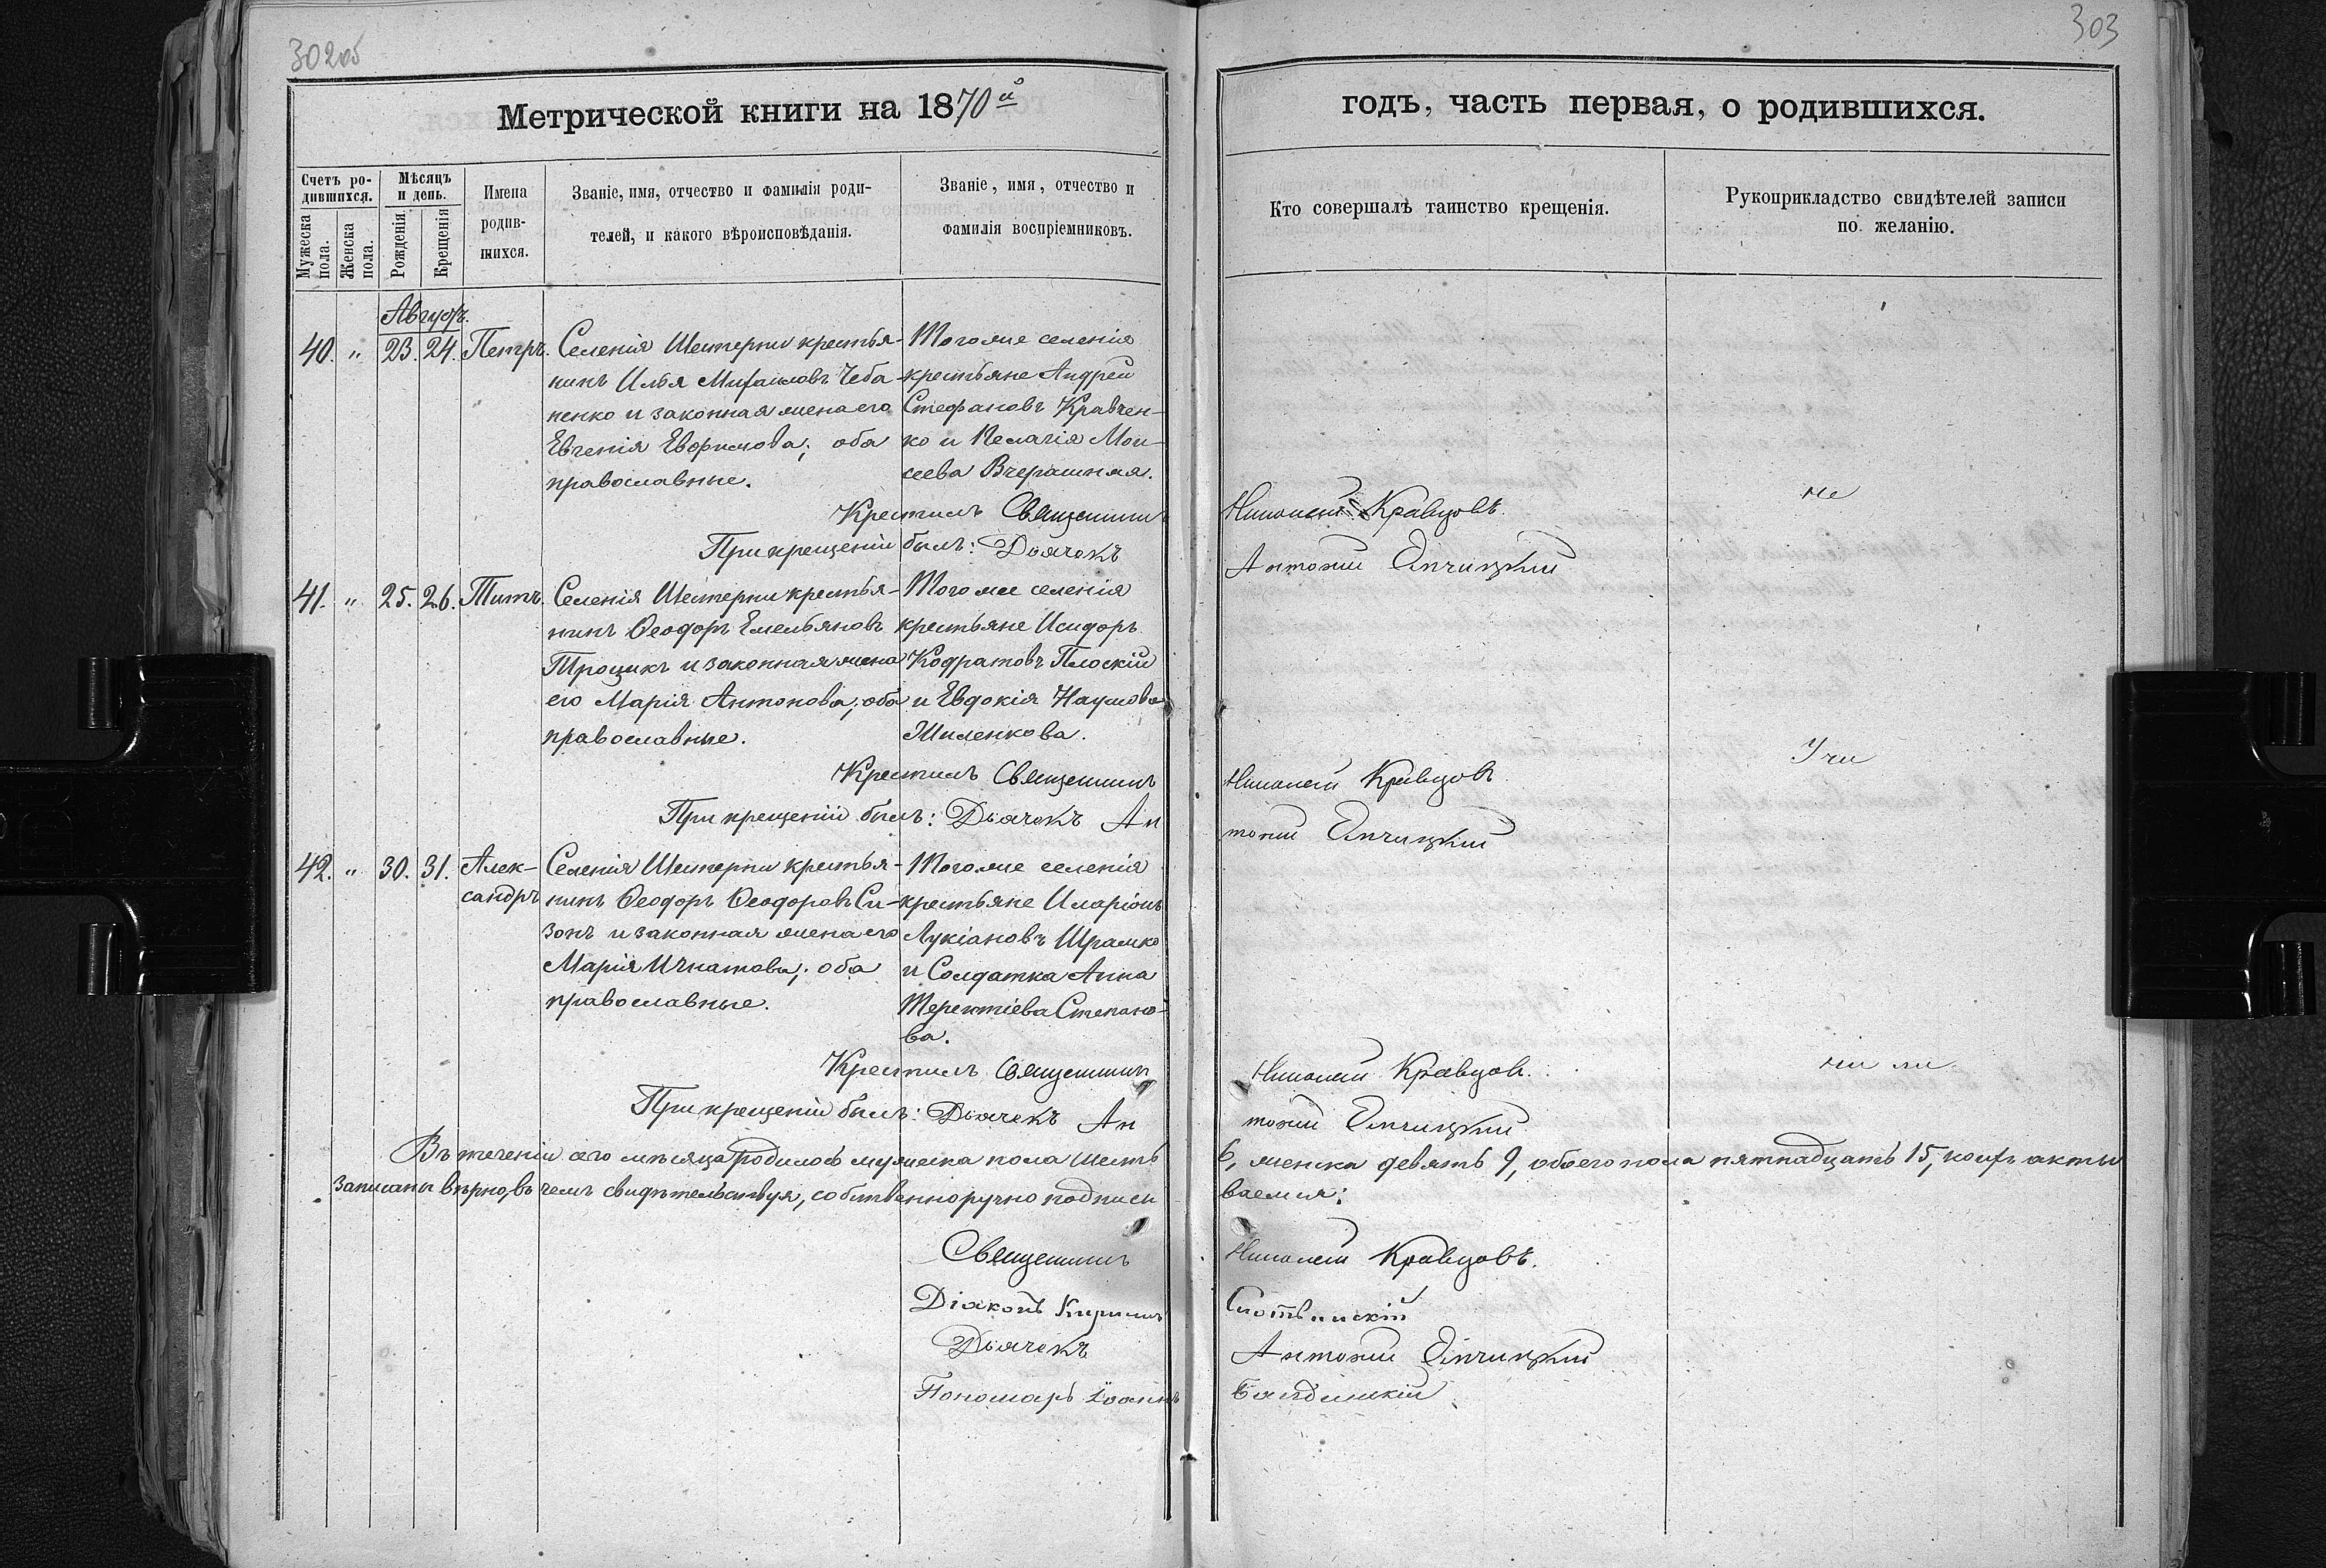 302об
303
Метрической книги на 1870й
годъ, часть первая, о родившихся.
Счетъ ро-
дившихся.
Мужеска пола.
Женска пола.
Мѣсяцъ
и день.
Рожденія.
Крещенія
Имена
родив-
шихся.
Званіе, имя, отчество и фамилія роди-
телей, и какого вѣроисповѣданія.
Званіе, имя, отчество и
фамилія воспріемниковъ.
Кто совершалъ таинство крещенія.
Рукоприкладство свидѣтелей записи
по желанію.
Августъ.
40. " 23. 24. Петръ.
Селенія Шестерни крестья-
нинъ Илья Михаиловъ Чеба-
ненко и законная жена его
Евгенія Евфимова; оба
православные.
Тогоже селенія
крестьяне Андрей
Стефановъ Кравчен-
ко и Пелагія Мои-
сеева Вчерашняя.
Крестилъ Священникъ Николай Кравцовъ.
не
При крещеніи былъ: Дьячекъ Антоній
41. " 25. 26. Титъ.
Селенія Шестерни крестья-
нинъ Ѳеодоръ Емельяновъ
Троцикъ и законная жена
его Марія Антонова; оба
православные.
Тогоже селенія
крестьяне Исидоръ
Кодратовъ Плоскій
и Евдокія Наумова
Шиленкова.
Крестилъ Священникъ Николай Кравцовъ
При крещеніи былъ: Дьячекъ Антоній
42. " 30. 31. Алек-
сандръ
Селенія Шестерни крестья-
нинъ Ѳеодоръ Ѳеодоровъ Си-
зонъ и законная жена его
Марія Игнатова; оба
православные.
Тогоже селенія
крестьяне Иларіонъ
Лукіановъ Шрамко
и Солдатка Анна
Терентіева Степано-
ва.
Крестилъ Священникъ Николай Кравцовъ.
При крещеніи былъ: Дьячекъ Антоній
Въ теченіи сего мѣсяца родилось мужеска пола шесть 6, женска девять 9, обоего пола пятнадцать 15, коихъ акты
записаны вѣрно, въ чемъ свидѣтельствуя, собственноручно подписываемся:
Священникъ Николай Кравцовъ.
Діаконъ Кирилъ
Дьячекъ Антоній
Пономарь Іоаннъ